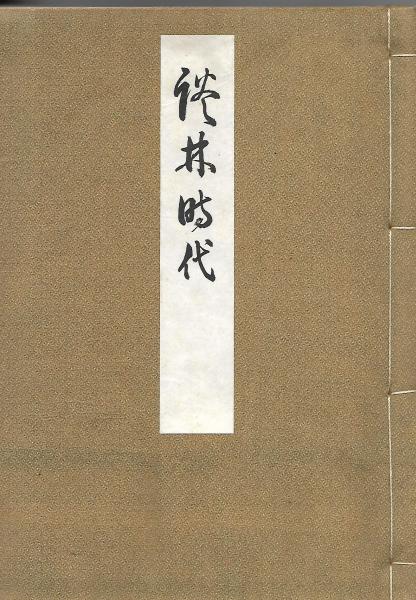 談林時代